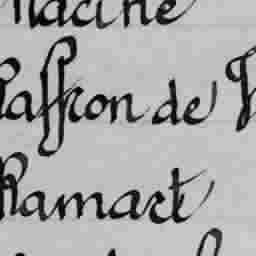 Racine
Raffron de
Ramart